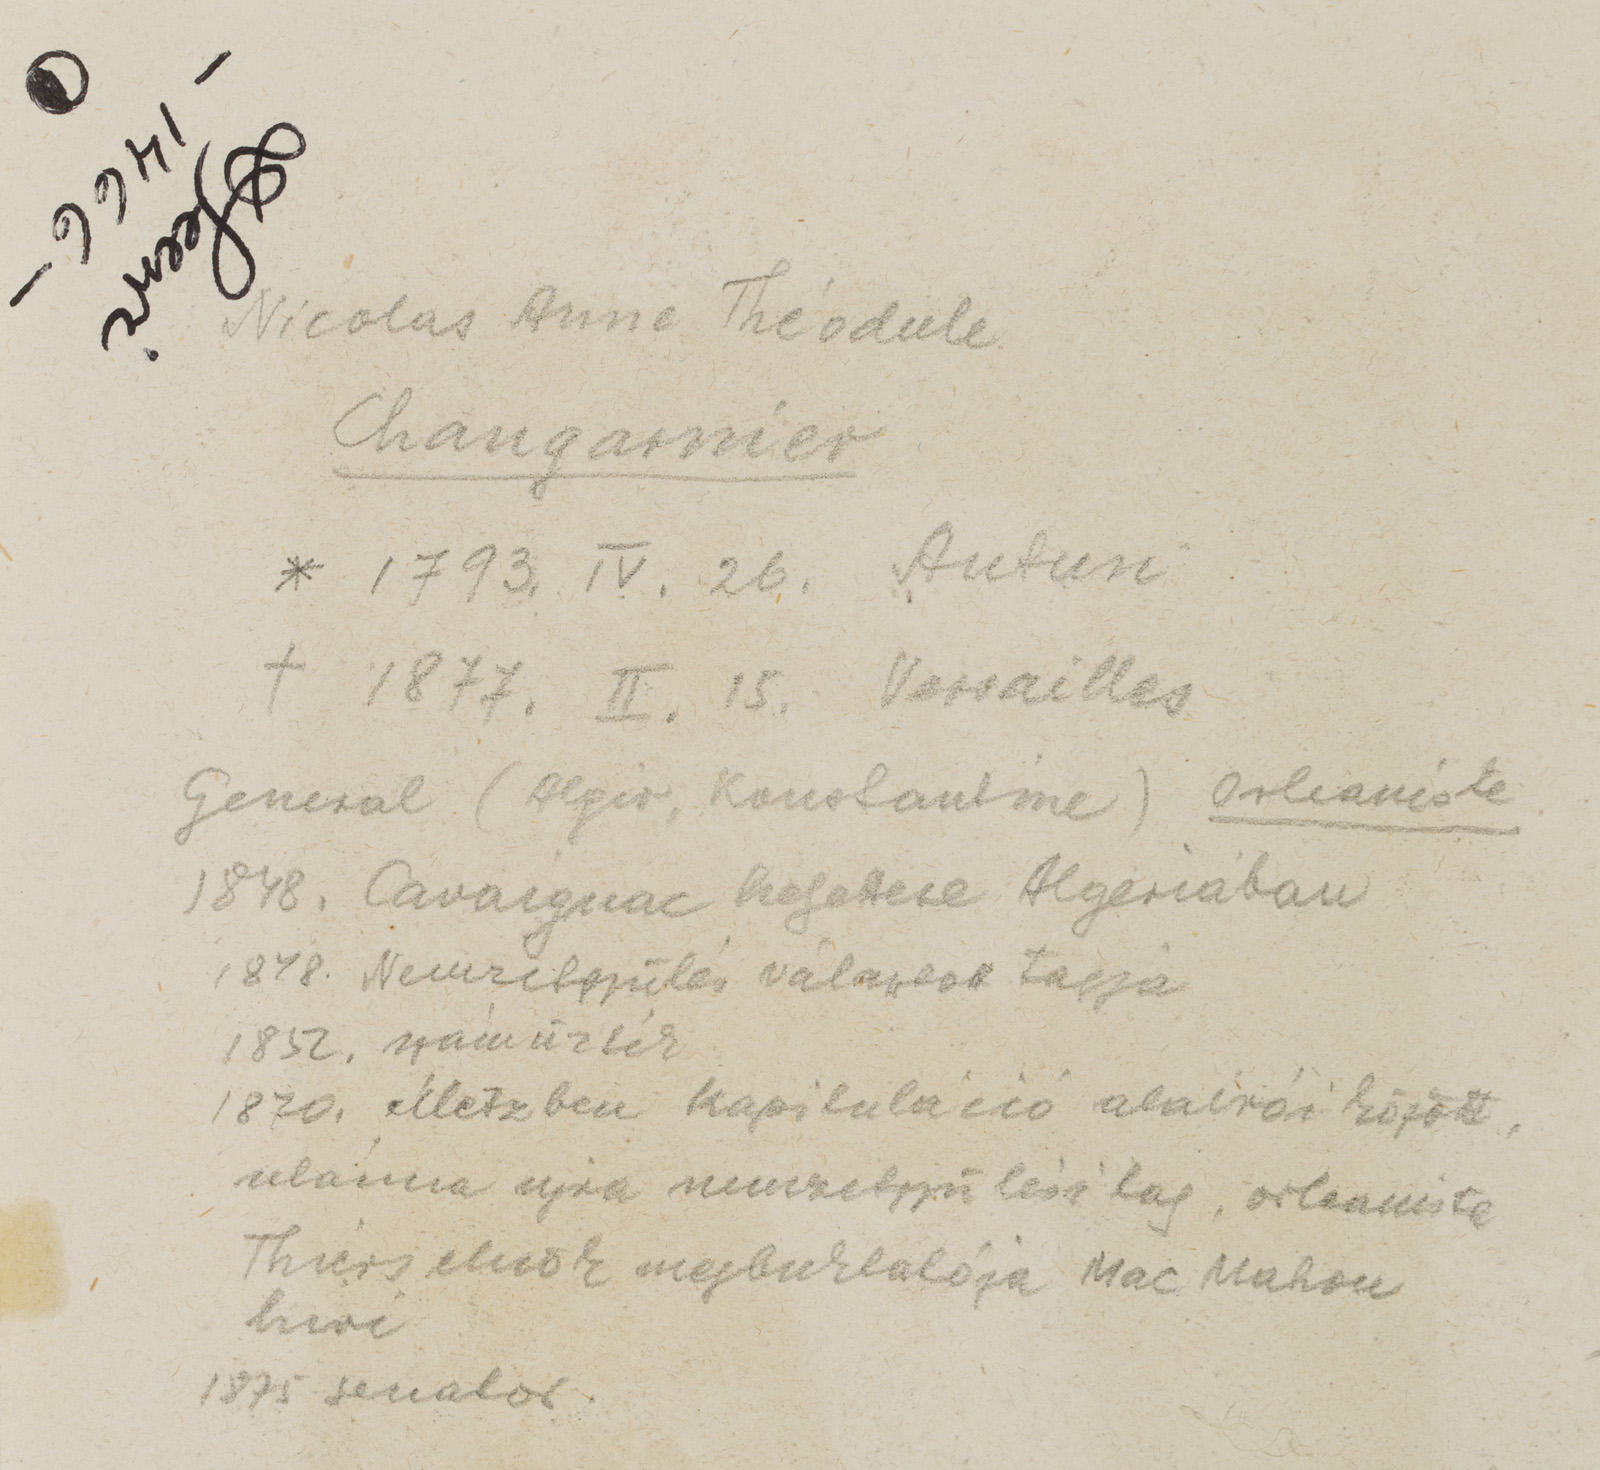 - 1466 -
Nicolas Anne Théodule
Changarnier
* 1793. IV. 26. Autun
† 1877. II. 15. Versailles
General (Algir, Konstantine) orleaniste
1848. Cavaignac helyettese Algeriában
1848. Nemzetgyülés választott tagja
1852. száműzték
1870. Metzben kapituláció aláirói között,
utánna ujra nemzetgyűlési tag, orleaniste
Thiers elnök megbuktatója Mac Mahon
hivi
1875 senator.